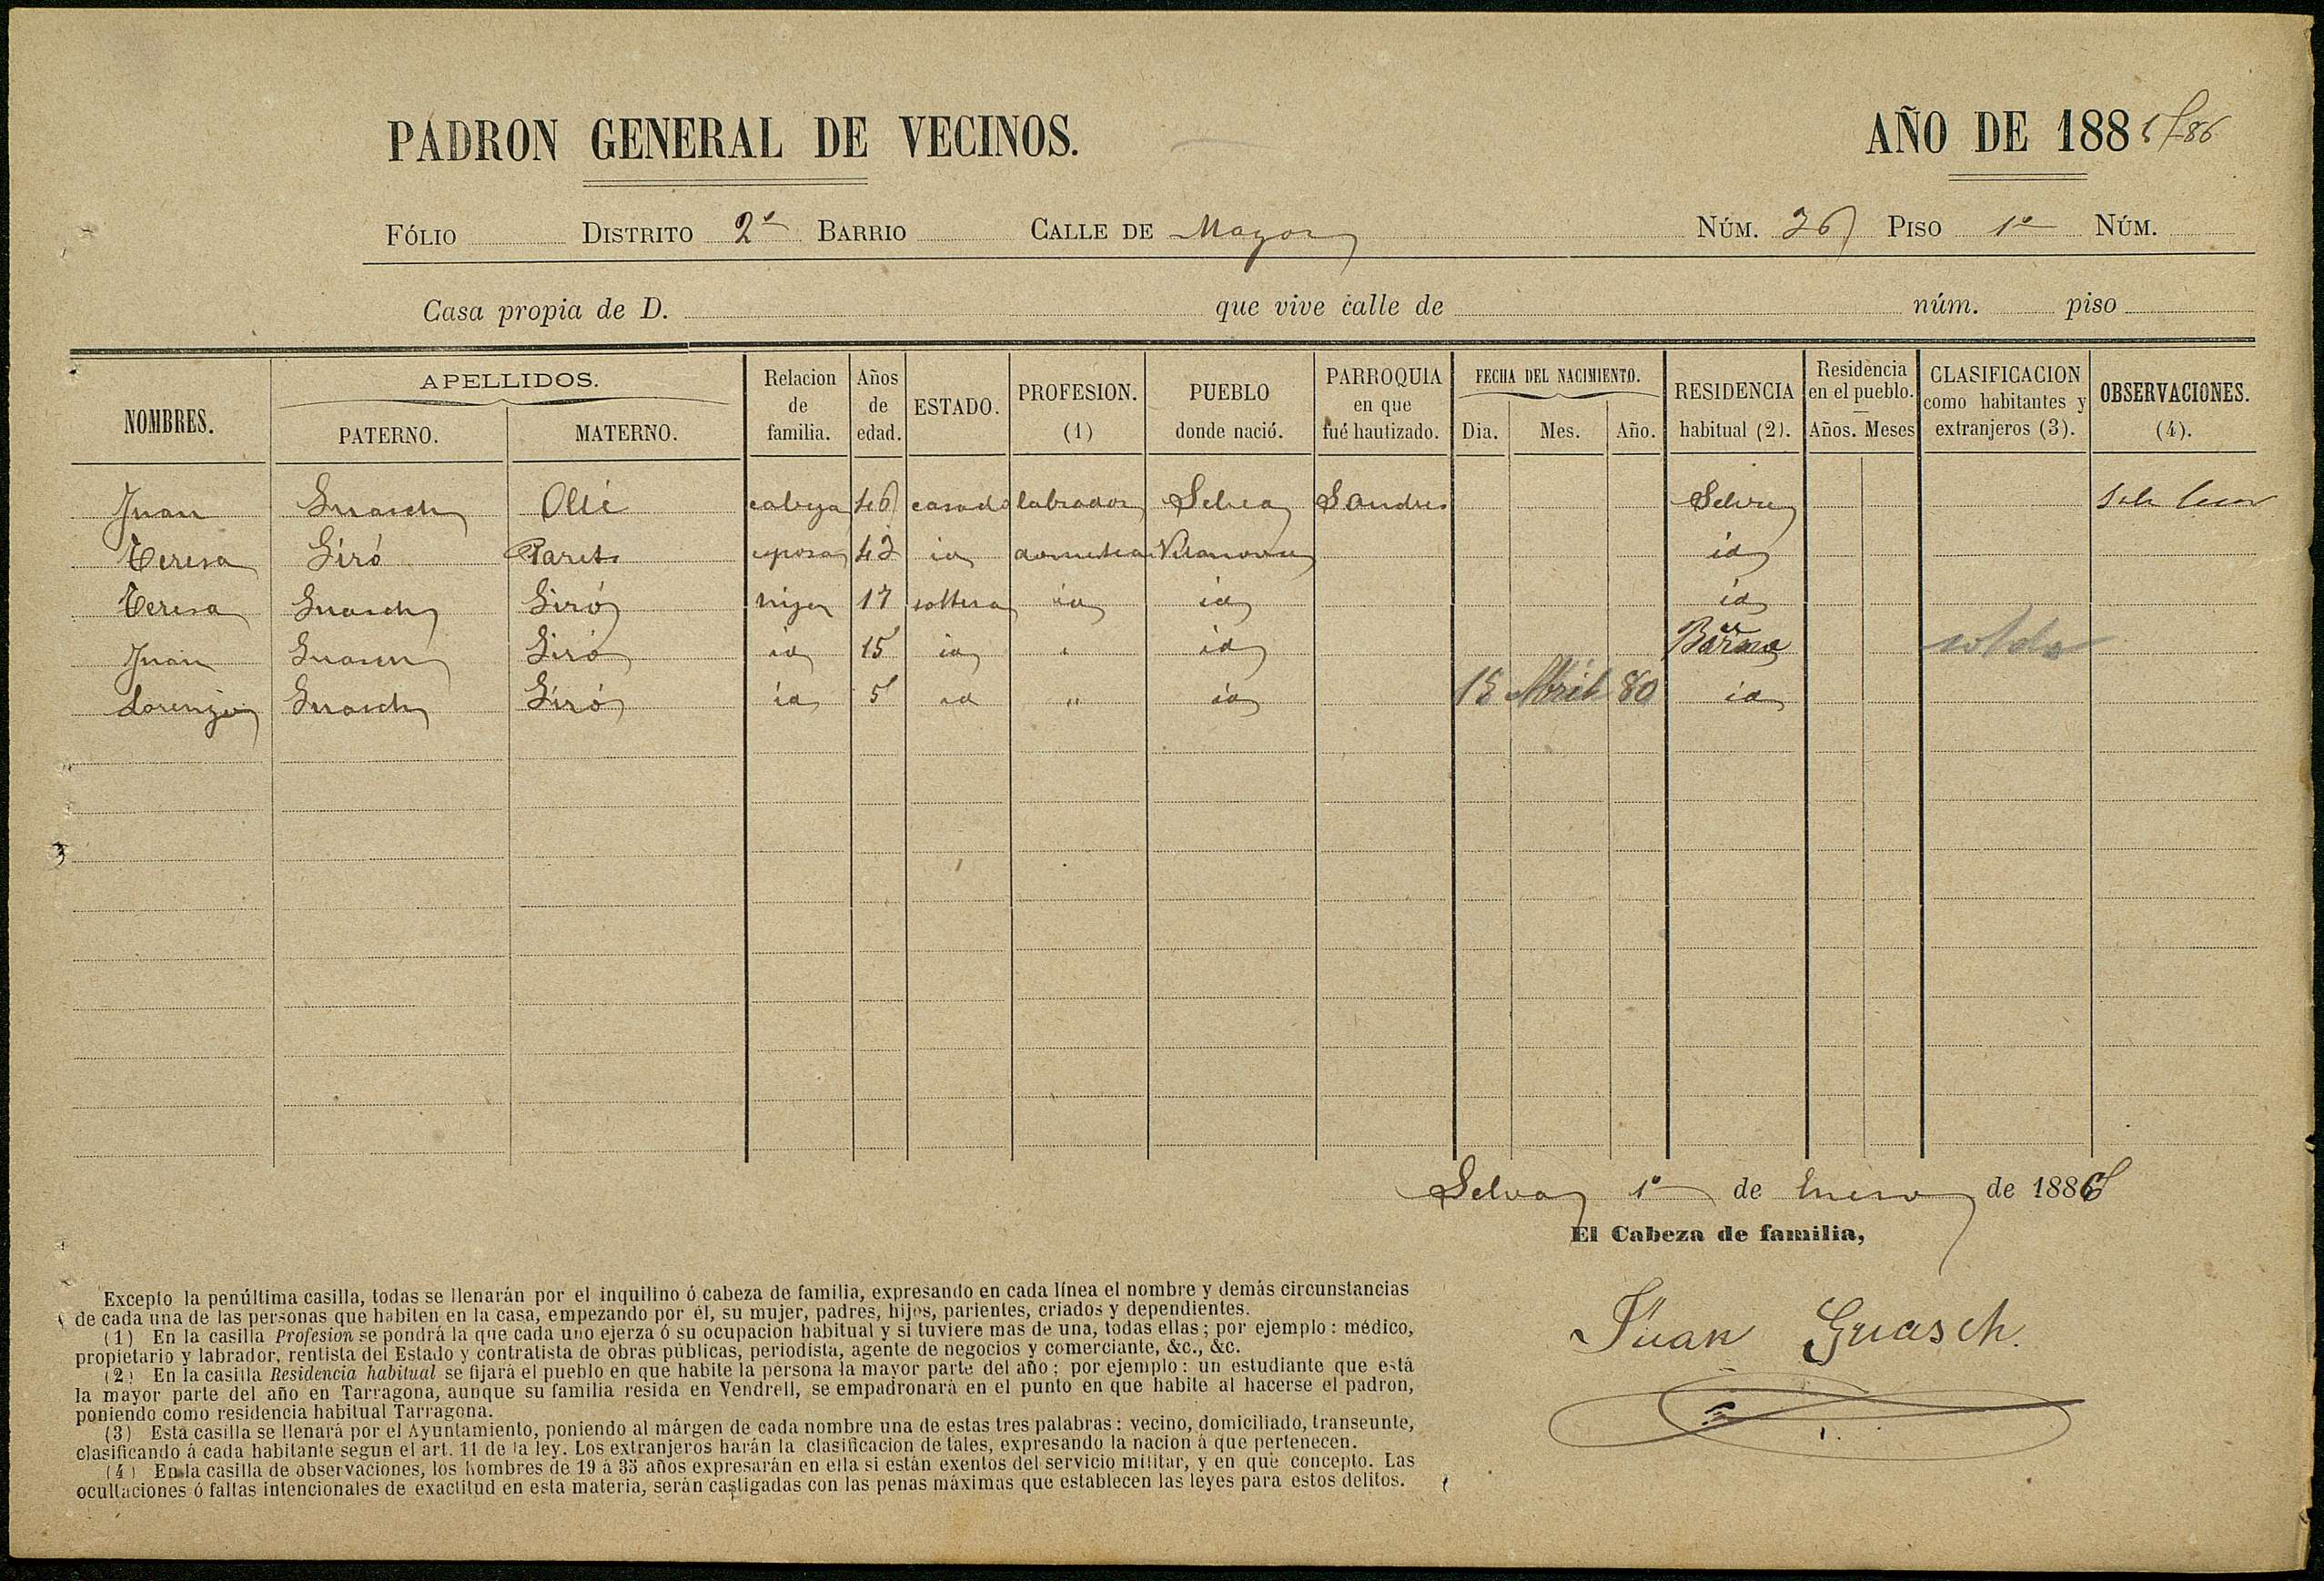 PADRON GENERAL DE VECINOS. AÑO DE 1885/86
FÓLIO DISTRITO 2º BARRIO CALLE DE Mayor NÚM. 26 PISO 1º NÚM.
Casa propia de D. que vive calle de núm. piso
NOMBRES. APELLIDOS. PATERNO. MATERNO. Relacion de familia. Años de edad. ESTADO. PROFESION. (1) PUEBLO donde nació. PARROQUIA en que fué bautizado. FECHA DEL NACIMIENTO. Dia. Mes. Año. RESIDENCIA habitual (2). Residencia en el pueblo. Años. Meses CLASIFICACION como habitantes y extranjeros (3). OBSERVACIONES. (4).
Juan Guasch Ollé cabeza 46 casado labrador Selva S Andres Selva
Teresa Giró Parets esposa 42 id domestica Vilanova id
Teresa Guasch Giró hija 17 soltera id id id
Juan Guasch Giró id 15 id " id Barna
Lorenzo Guasch Giró id 5 id " id 15 Abril 80 id
Selva 1º de Enero de 1886
El Cabeza de familia,
Juan Guasch.
Excepto la penúltima casilla, todas se llenarán por el inquilino ó cabeza de familia, expresando en cada línea el nombre y demás circunstancias
de cada una de las personas que habiten en la casa, empezando por él, su mujer, padres, hijos, parientes, criados y dependientes.
(1) En la casilla Profesion se pondrá la que cada uno ejerza ó su ocupacion habitual y si tuviere mas de una, todas ellas; por ejemplo: médico,
propietario y labrador, rentista del Estado y contratista de obras públicas, periodista, agente de negocios y comerciante, &c., &c.
(2) En la casilla Residencia habitual se fijará el pueblo en que habite la persona la mayor parte del año; por ejemplo: un estudiante que está
la mayor parte del año en Tarragona, aunque su familia resida en Vendrell, se empadronará en el punto en que habite al hacerse el padron,
poniendo como residencia habitual Tarragona.
(3) Esta casilla se llenará por el Ayuntamiento, poniendo al márgen de cada nombre una de estas tres palabras: vecino, domiciliado, transeunte,
clasificando á cada habitante segun el art. 11 de la ley. Los extranjeros harán la clasificacion de tales, expresando la nacion á que pertenecen.
(4) En la casilla de observaciones, los hombres de 19 á 35 años expresarán en ella si están exentos del servicio militar, y en qué concepto. Las
ocultaciones ó faltas intencionales de exactitud en esta materia, serán castigadas con las penas máximas que establecen las leyes para estos delitos.